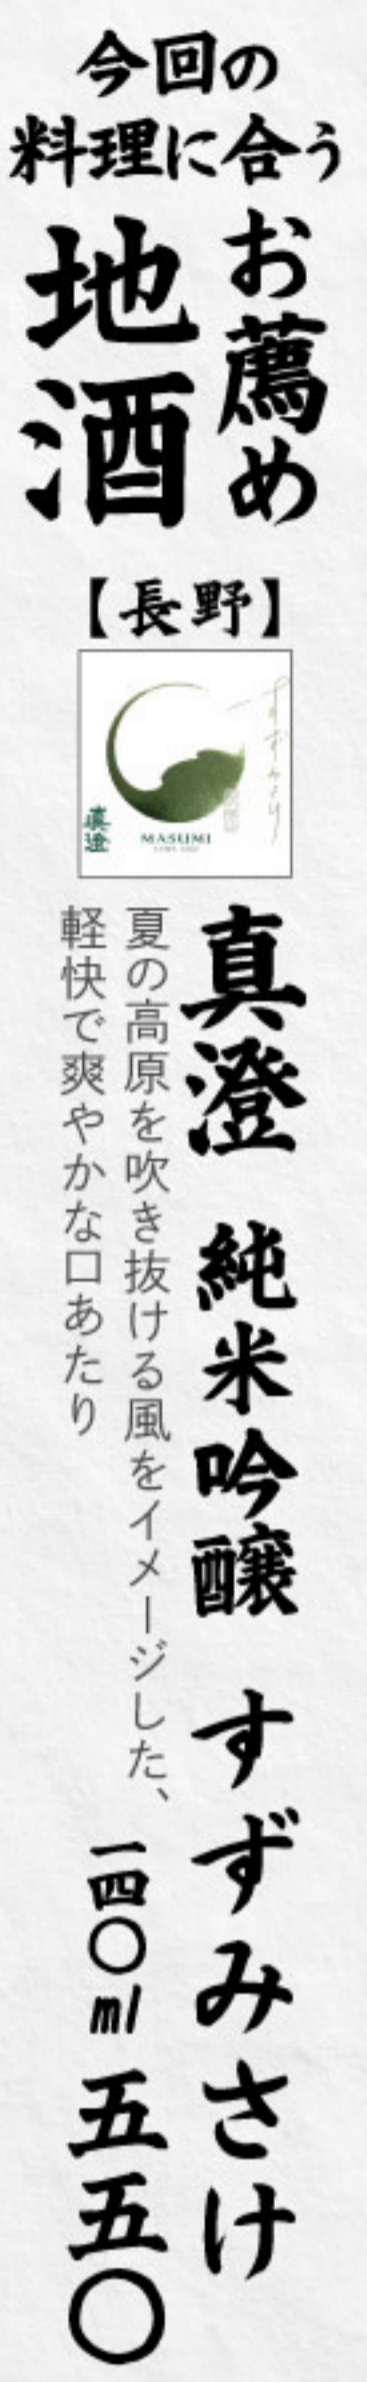 今回の
料理に合う
お薦め
地酒
【長野】
すずみさけ
真澄
MASUMI
真澄 純米吟醸 すずみさけ
夏の高原を吹き抜ける風をイメージした、
軽快で爽やかな口あたり
一四〇ml 五五〇